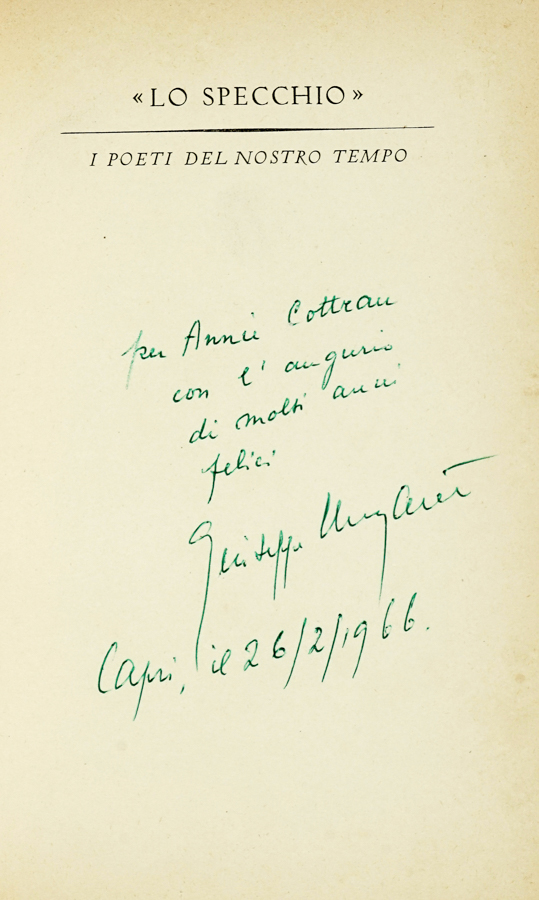 « LO SPECCHIO »
I POETI DEL NOSTRO TEMPO
per Annie Cottrau
con l'augurio
di molti anni
felici
Giuseppe Ungaretti
Capri, il 26/2/1966.